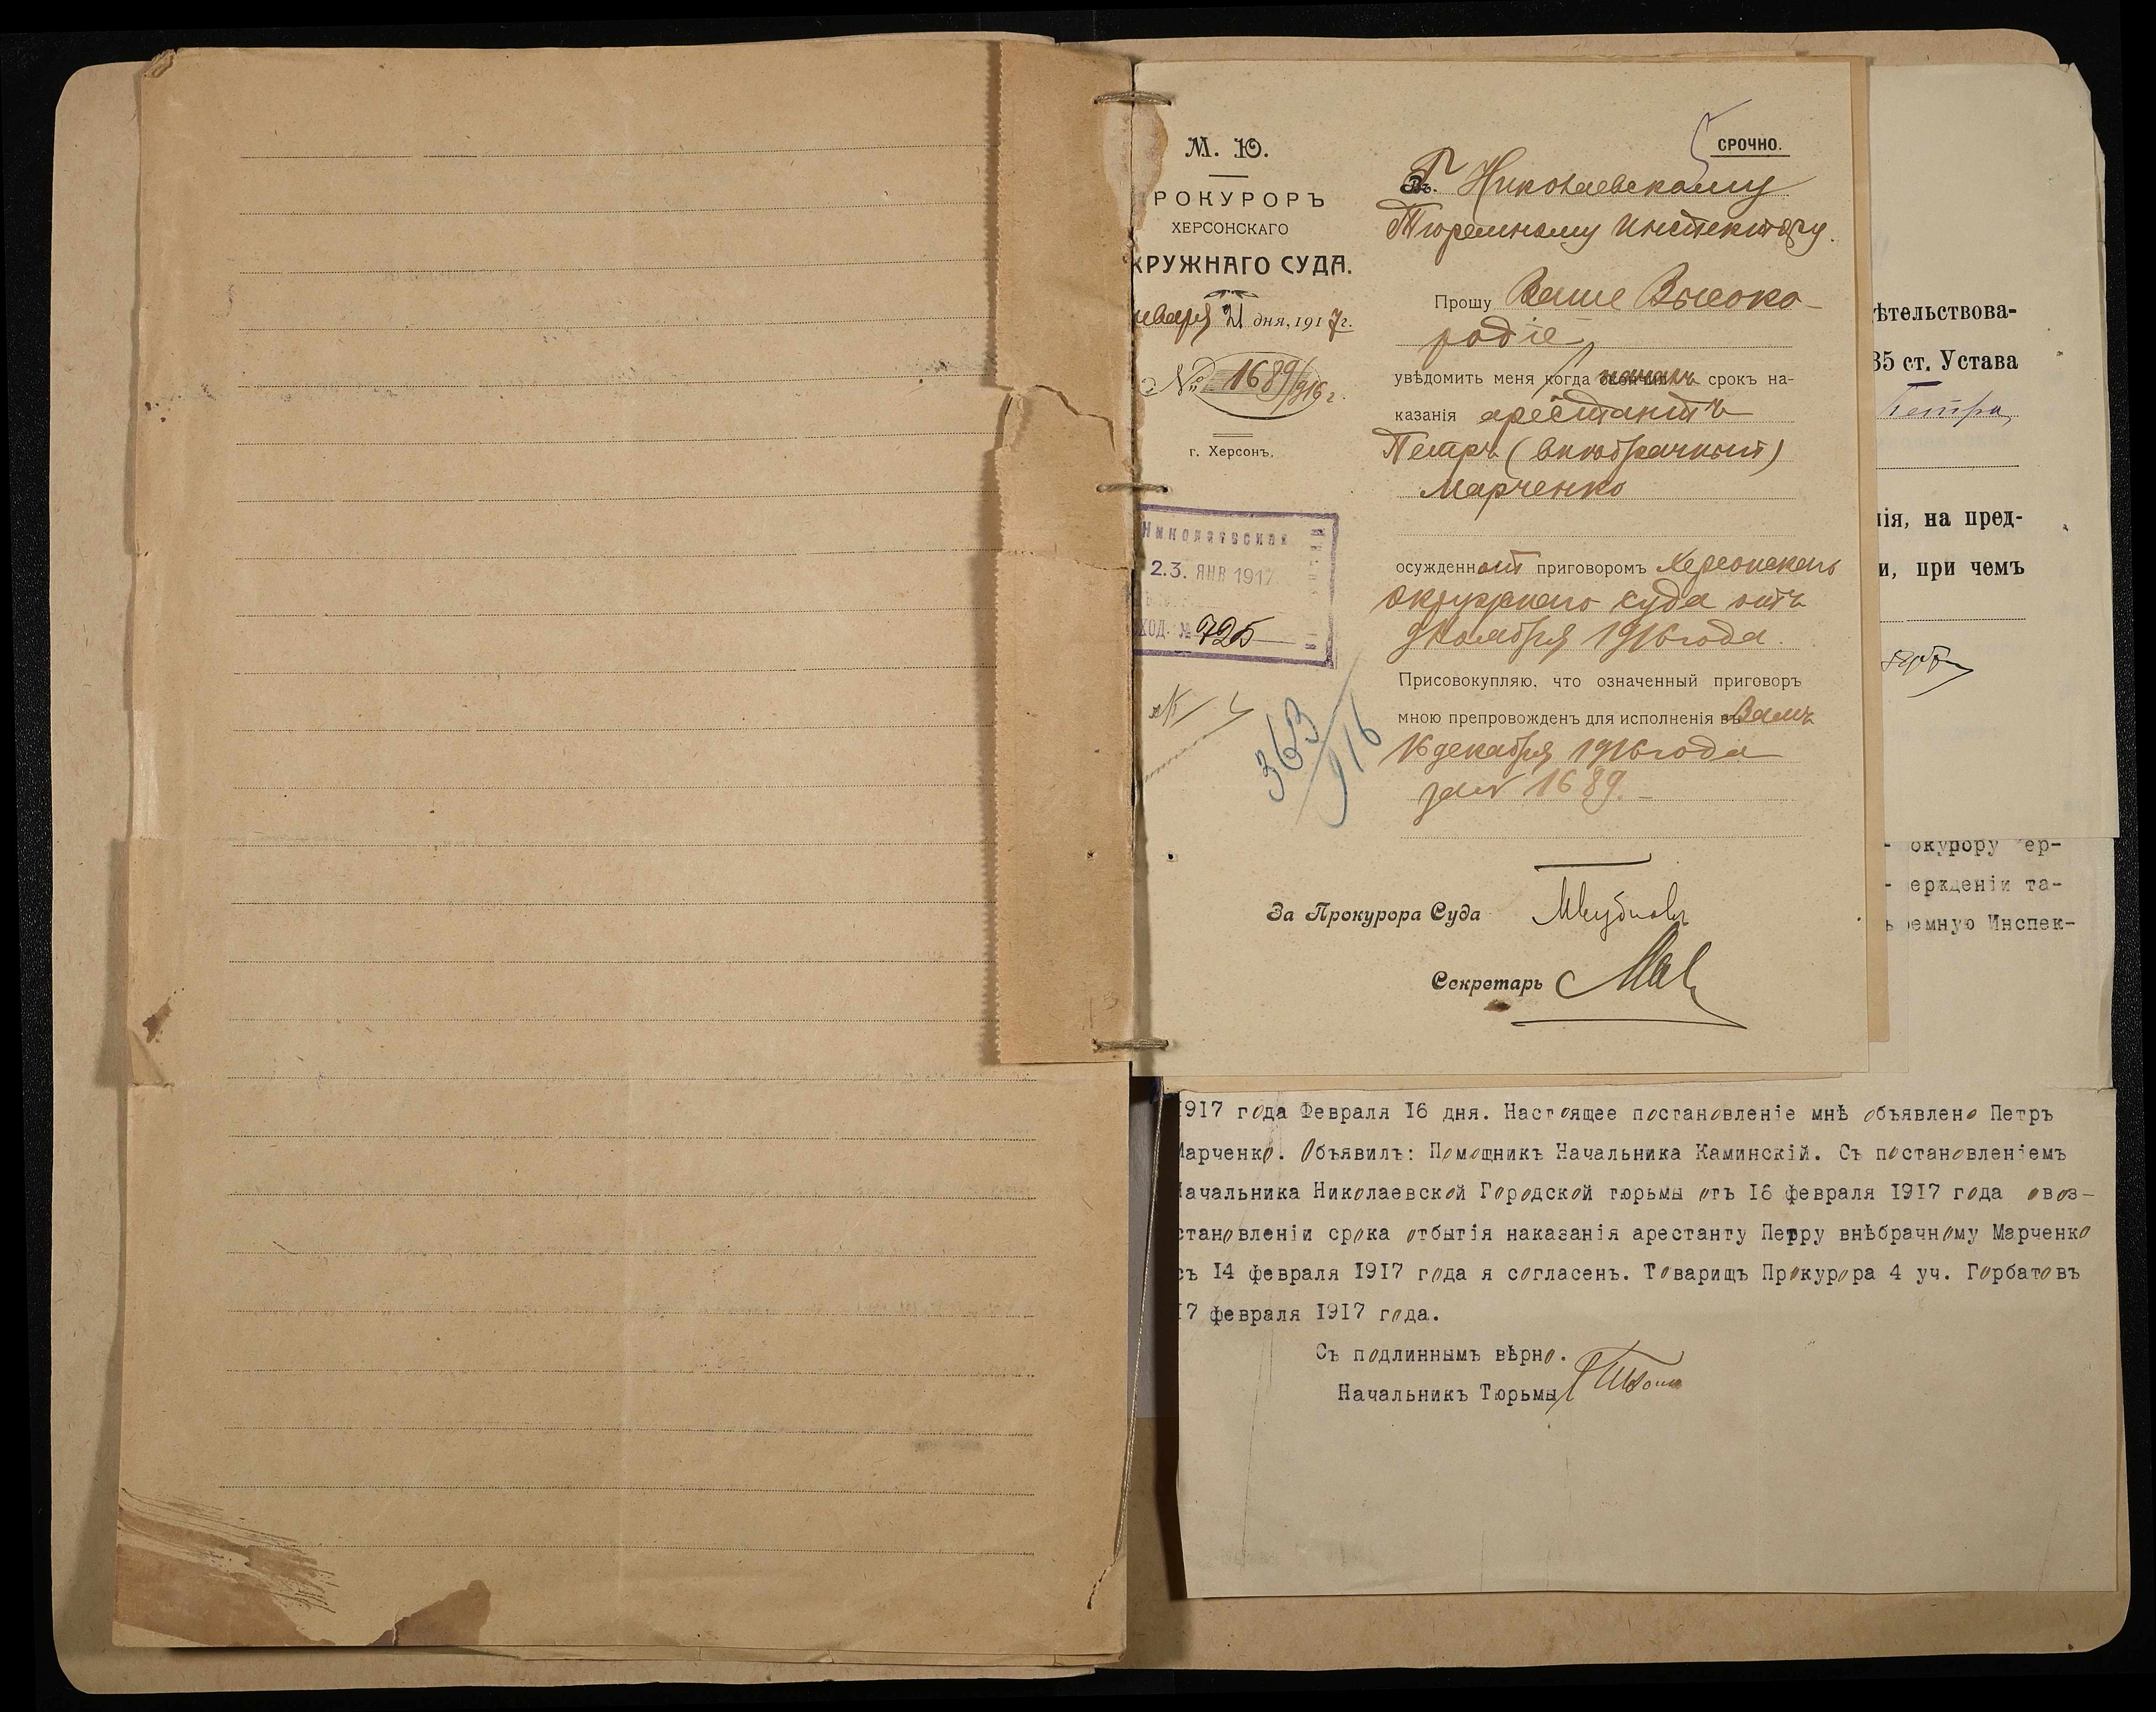 М. Ю.
РОКУРОРЪ
ХЕРСОНСКАГО
КРУЖНАГО СУДА.
нваря 21 дня, 1917 г.
№ 1689/916 г.
г. Херсонъ.
Николаевская
23. ЯНВ 1917
ХОД. № 725
363/916
СРОЧНО.
Г. Николаевскому
Тюремному Инспектору.
Прошу Ваше Высоко-
родіе
увѣдомить меня когда срокъ на-
казанія арестантъ
Петръ (внѣбрачный)
Марченко
осужденный приговоромъ Херсонскаго
Окружнаго Суда отъ
9 Ноября 1916 года.
Присовокупляю, что означенный приговоръ
мною препровожденъ для исполненія Вамъ
16 декабря 1916 года
за № 1689.
За Прокурора Суда
Секретарь
ѣтельствова-
35 ст. Устава
Петра,
нія, на пред-
и, при чемъ
окурору ер-
ержденіи та-
ремную Инспек-
1917 года Февраля 16 дня. Настоящее постановленіе мнѣ объявлено Петръ
Марченко. Объявилъ: Помощникъ Начальника Каминскій. Съ постановленіемъ
Начальника Николаевской Городской тюрьмы отъ 16 февраля 1917 года овоз-
становленіи срока отбытія наказанія арестанту Петру внѣбрачному Марченко
съ 14 февраля 1917 года я согласенъ. Товарищъ Прокурора 4 уч. Горбатовъ
17 февраля 1917 года.
Съ подлиннымъ вѣрно.
Начальникъ Тюрьмы